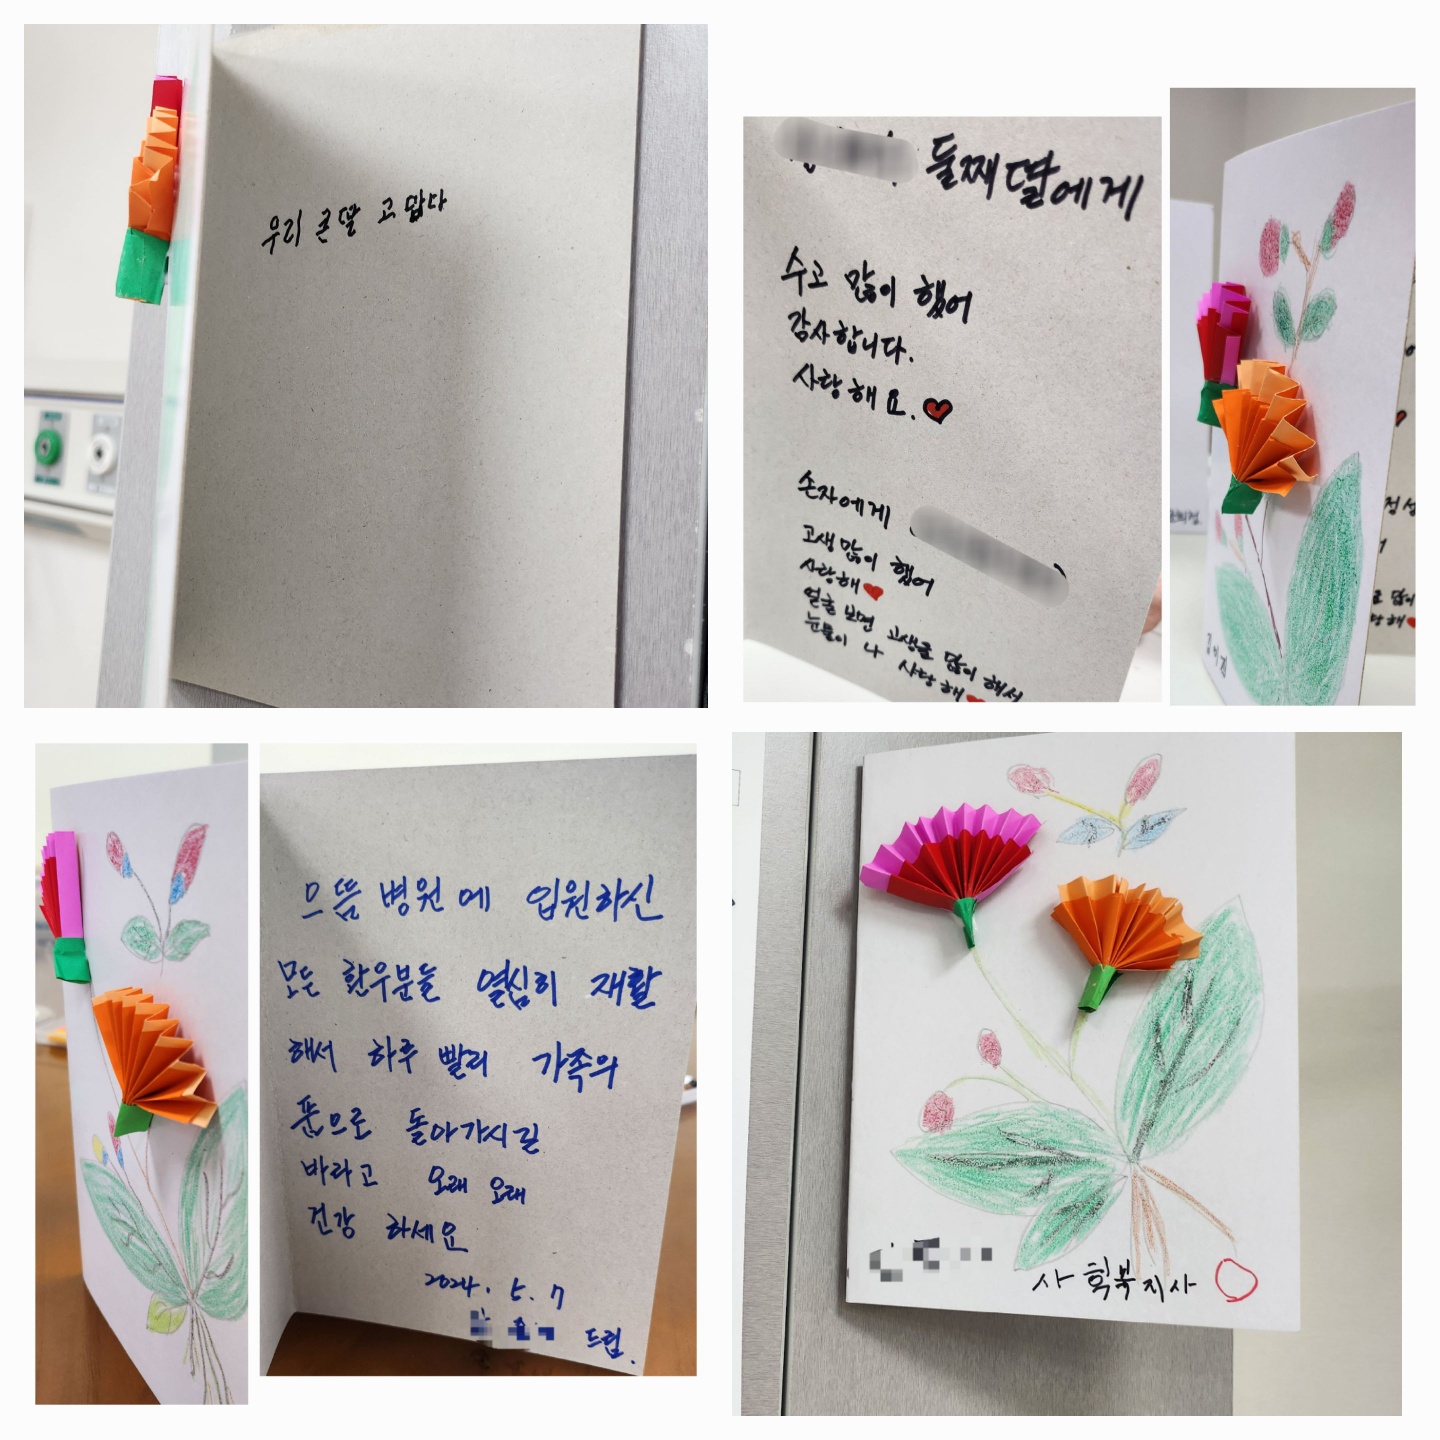 우리 큰딸 고맙다
둘째딸에게
수고 많이 했어
감사합니다.
사랑해요.
손자에게
고생많이 했어
사랑해
얼굴 보면 고생을 많이 해서
눈물이 나 사랑해
으뜸 병원에 입원하신
모든 환우분들 열심히 재활
해서 하루 빨리 가족의
품으로 돌아가시길
바라고 오래 오래
건강 하세요
2024. 5. 7
드림.
사회복지사